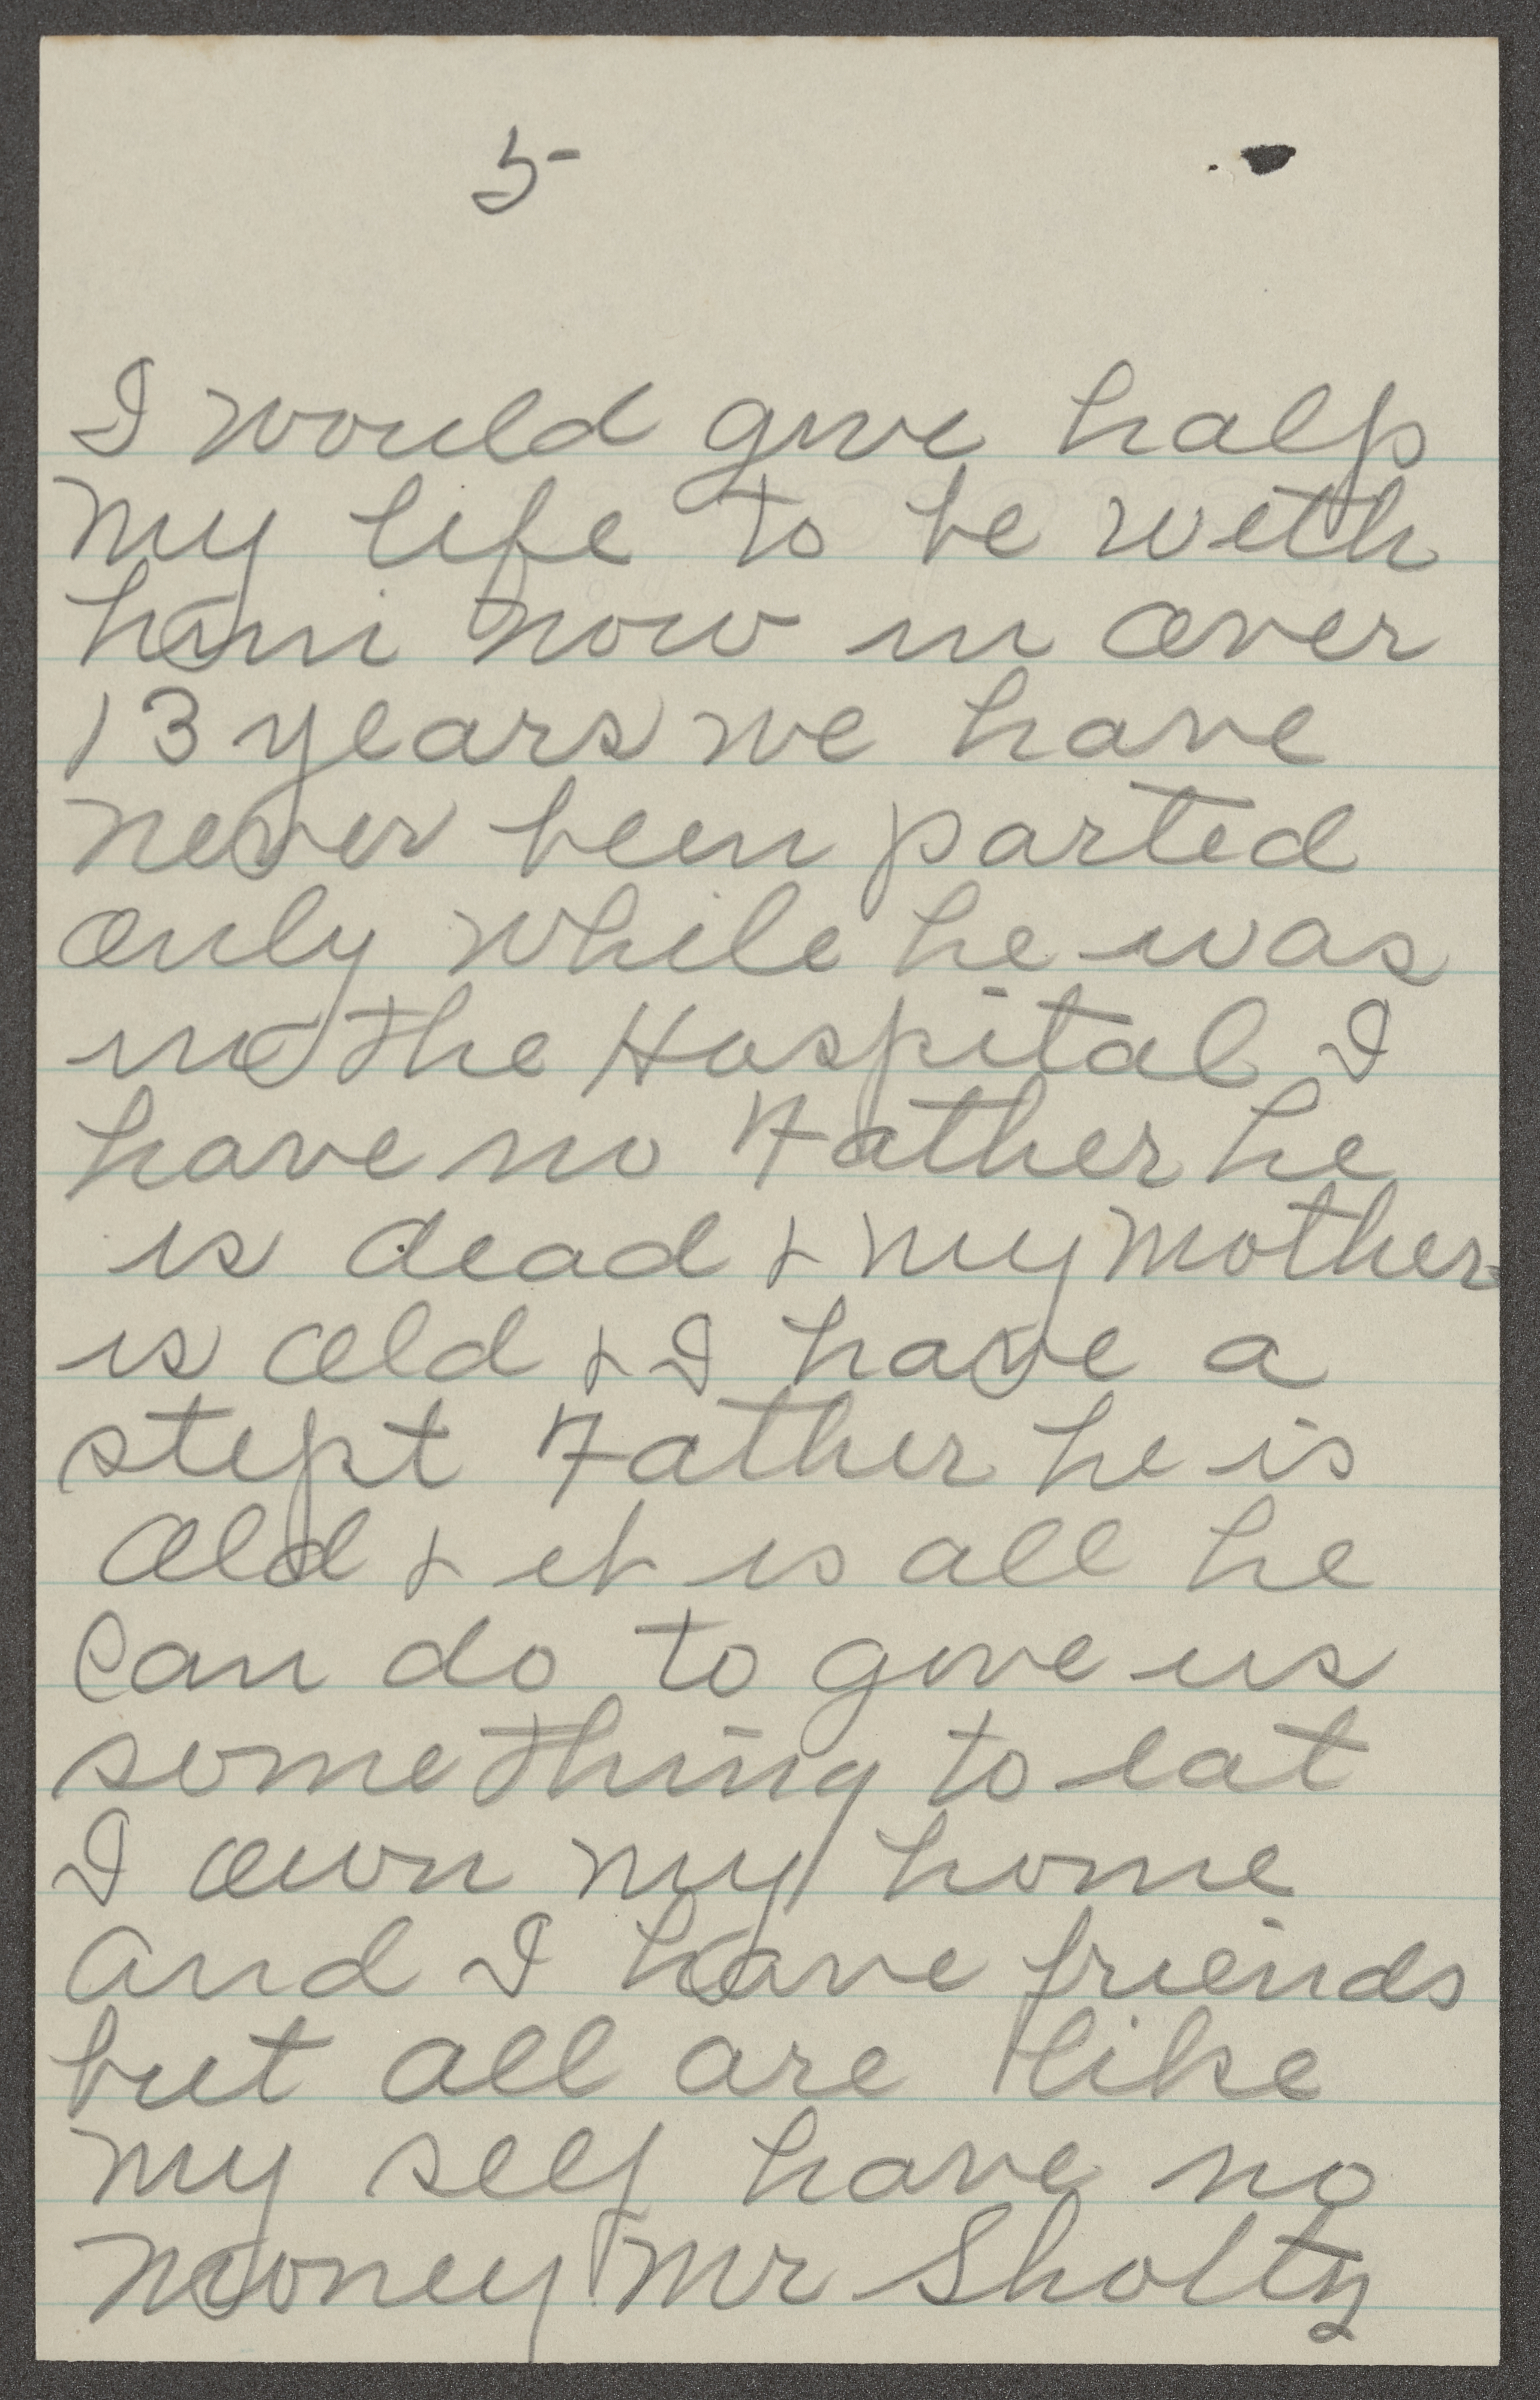 5
I would give half
my life to be with
him now in over
13 years we have
never been parted
only while he was
in the Hospital I
have no Father he
is dead & my mother
is old & I have a
stept Father he is
old & it is all he
can do to give us
something to eat
I own my home
and I have friends
but all are like
my self have no
money Mr Sholtz